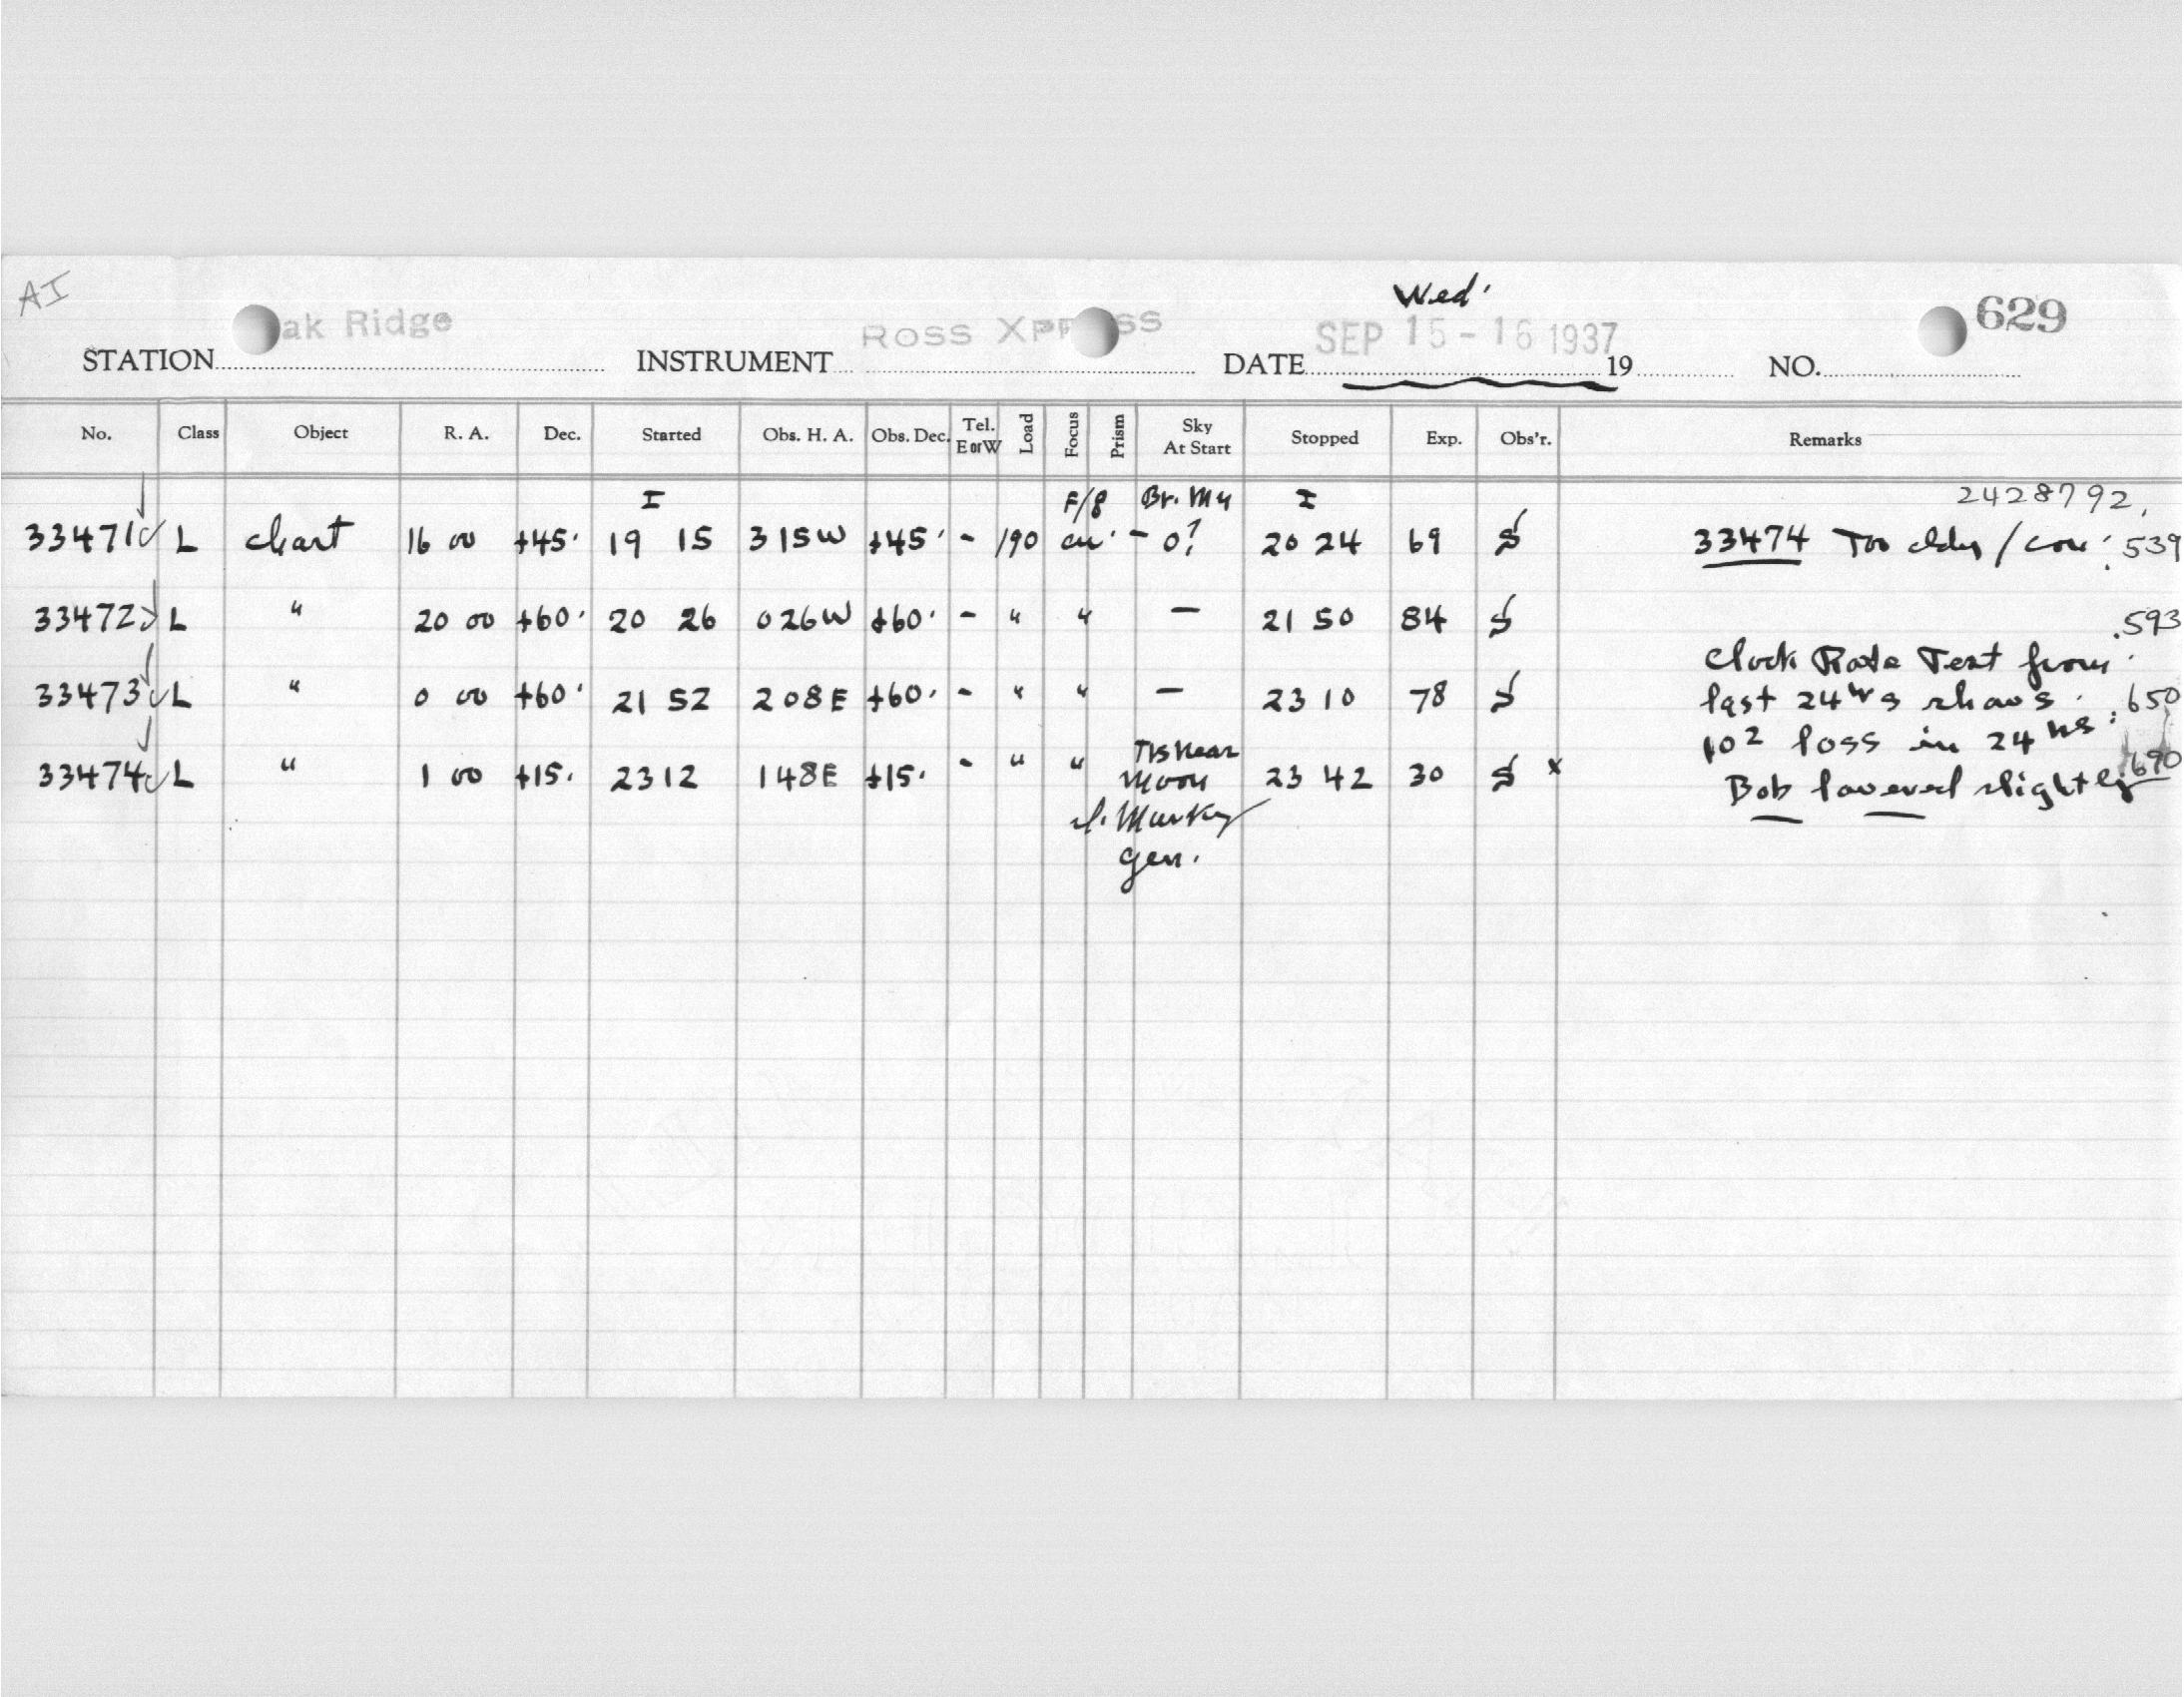 AI
Wed.
STATION Oak Ridge INSTRUMENT Ross Xpress DATE SEP 15-16 1937 19 NO. 629
No. Class Object R. A. Dec. Started Obs. H. A. Obs. Dec. Tel. E or W Load Focus Prism Sky At Start Stopped Exp. Obs'r. Remarks
I F/8 Br. I 2428792.
33471 L chart 16 00 +45. 19 15 315W +45. - 190 - 0? 20 24 69 S 33474 Too cldy / .539
33472 L " 20 00 +60. 20 26 026W +60. - " " - 21 50 84 S .593
Clock Rate Test from
33473 L " 0 00 +60. 21 52 208E +60. - " " - 23 10 78 S last 24 hrs shows .650
10 2 loss in 24 hrs.
33474 L " 1 00 +15. 23 12 148E +15. - " " near Moon 23 42 30 S x Bob lowered slightly .690
Murky
gen.